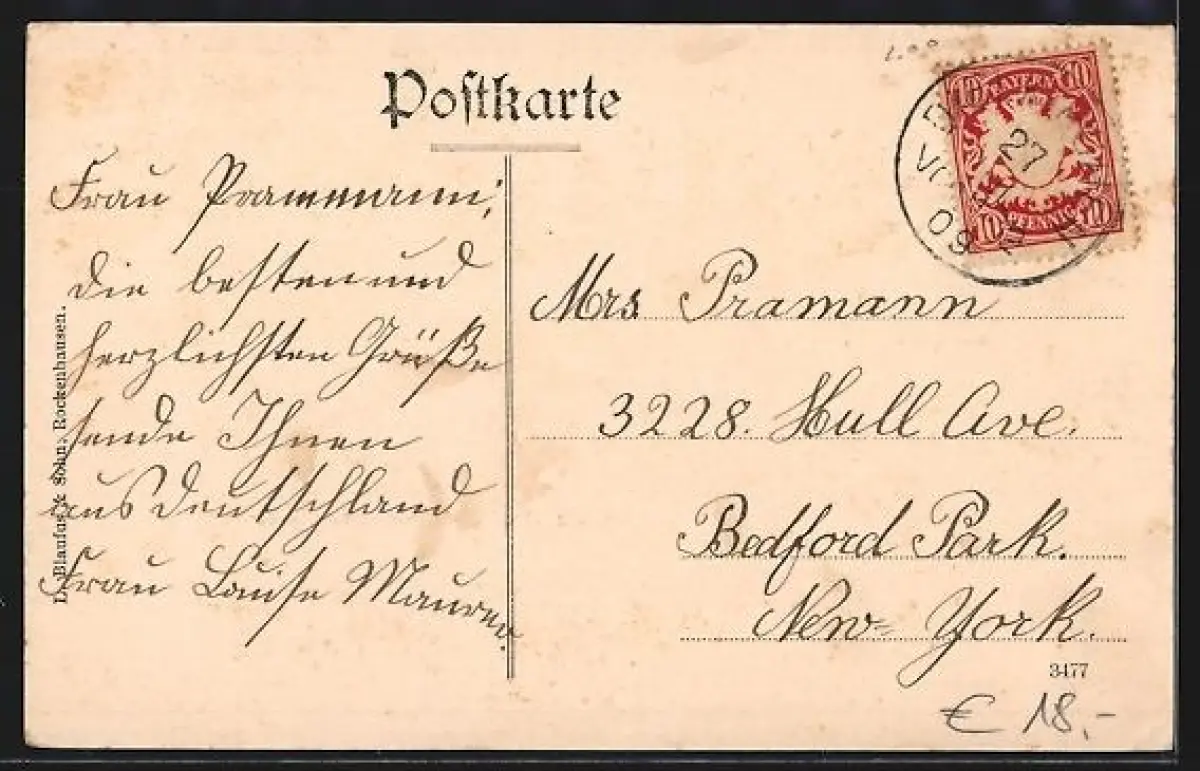 Postkarte
Frau Prammann,
die besten und
herzlichsten Grüße
sende Ihnen
aus Deutschland
Frau Louise Maurer.
L. Blaufuß & Sohn, Rockenhausen.
10 BAYERN 10
10 PFENNIG 10
27
VI
09
Mrs Pramann
3228. Hull Ave.
Bedford Park.
New-York.
3477
€ 18,-